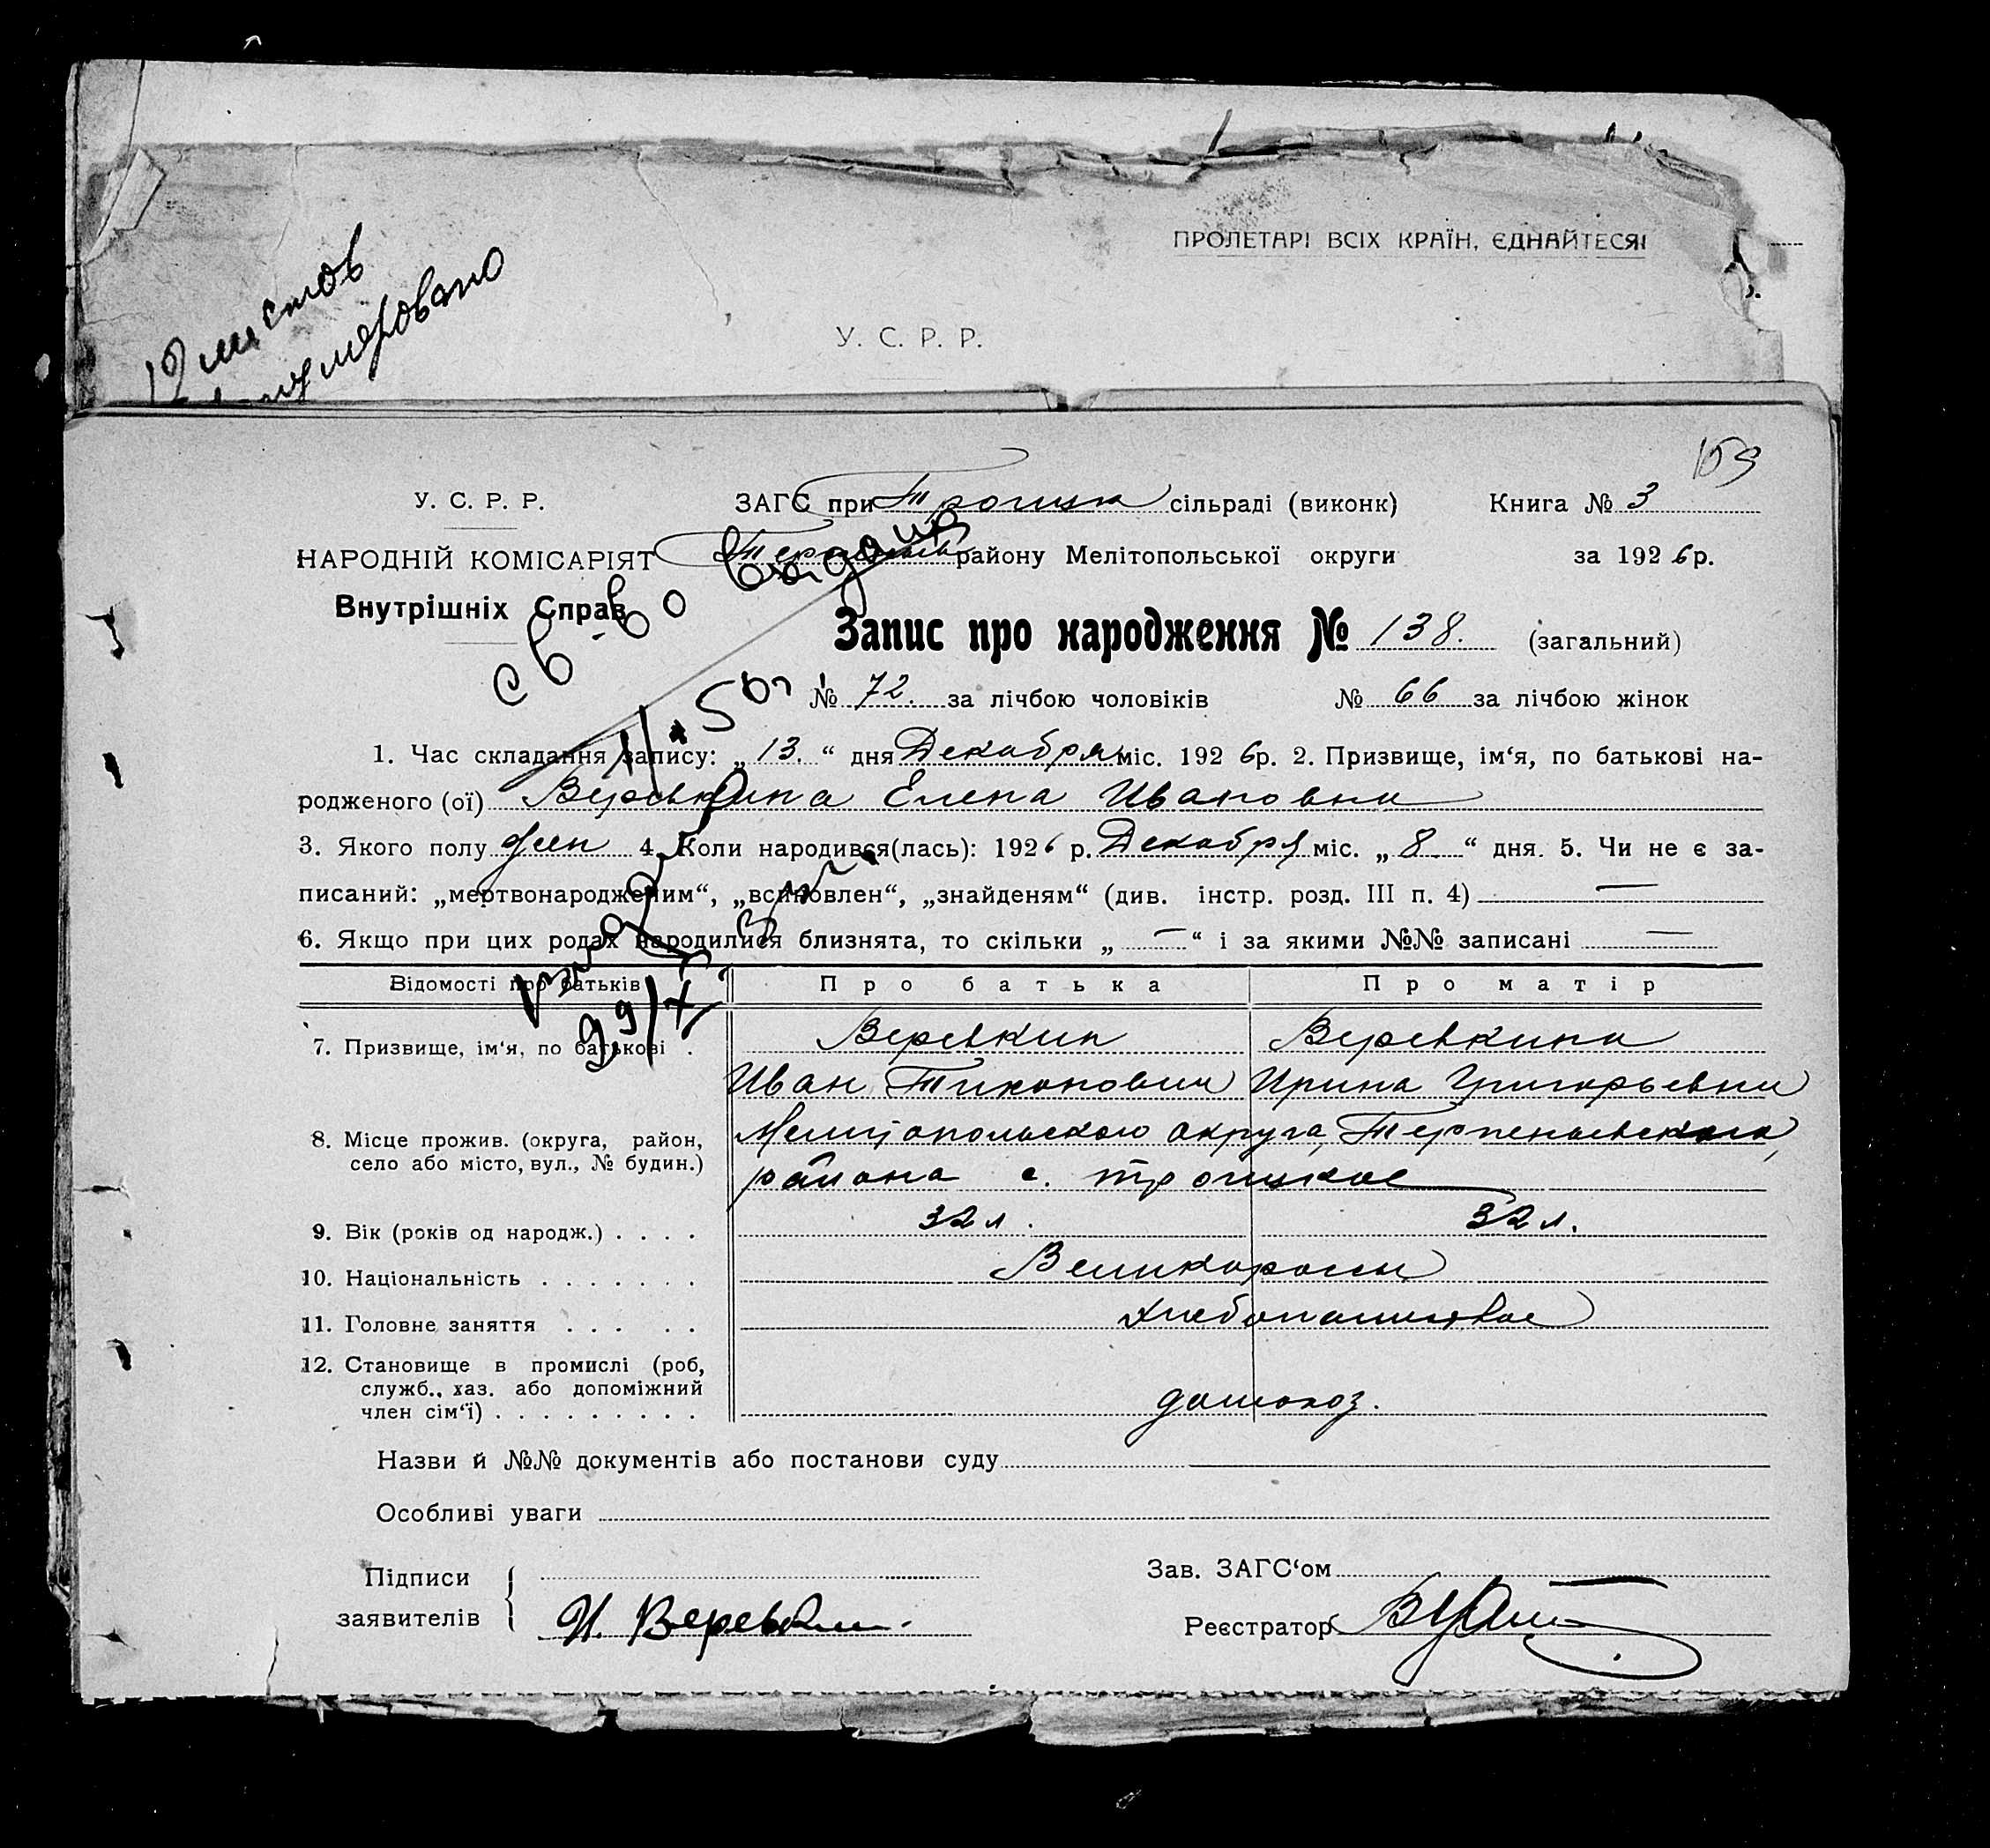 12 листов
пронумеровано
ПРОЛЕТАРІ ВСІХ КРАЇН, ЄДНАЙТЕСЯ!
У. С. Р. Р.
159
У. С. Р. Р. ЗАГС при Троицк сільраді (виконк) Книга № 3
НАРОДНІЙ КОМІСАРІЯТ району Мелітопольської округи за 1926 р.
Внутрішніх Справ
св-во выдано
Запис про народження № 138. (загальний)
№ 72. за лічбою чоловіків № 66 за лічбою жінок
1. Час складання запису: „13.“ дня Декабря міс. 1926 р. 2. Призвище, ім‘я, по батькові на-
родженого (ої) Веревкина Елена Ивановна
3. Якого полу жен 4. Коли народився(лась): 1926 р. Декабря міс. „8.“ дня. 5. Чи не є за-
писаний: „мертвонародженим“, „всиновлен“, „знайденям“ (див. інстр. розд. III п. 4) —
6. Якщо при цих родах народилися близнята, то скільки „—“ і за якими №№ записані —
Відомості про батьків Про батька Про матір
7. Призвище, ім‘я, по батькові . Веревкин Веревкина
Иван Тихонович Ирина Григорьевна
8. Місце прожив. (округа, район, Мелитопольского округа, Терпеньевского
село або місто, вул., № будин.) района с. Троицкое
9. Вік (років од народж.) . . . . 32 л. 32 л.
10. Національність . . . . . . . Великороссы
11. Головне заняття . . . . . Хлебопашество
12. Становище в промислі (роб,
служб., хаз. або допоміжний
член сім‘ї) . . . . . . . . . домохоз.
Назви й №№ документів або постанови суду
Особливі уваги
Підписи Зав. ЗАГС‘ом
заявителів И. Веревкин. Реєстратор